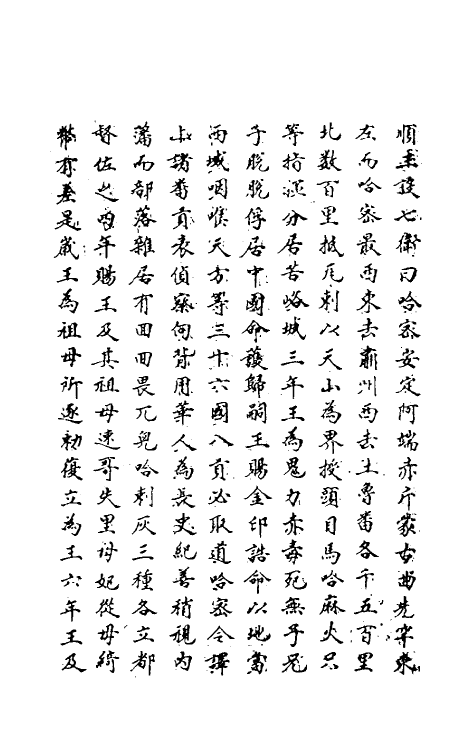 順王設七衛曰哈密安定阿端赤斤蒙古曲先罕東
左而哈密最西東去肅州西去土魯番各千五百里
北数百里抵瓦剌以天山為界授頭目馬哈麻火只
等指揮分居苦峪城三年王為鬼力赤毒死無子兄
子脱脱俘居中國命護歸嗣王賜金印誥命以地當
西域咽喉天方等三十六國入貢必取道哈密令譯
上諸番貢表偵察向背用華人為長史紀善稍視内
藩而部落雜居有回回畏兀兒哈剌灰三種各立都
督佐之明年賜王及其祖母速哥失里母妃從母綺
幣有差是歲王為祖母所逐勅復立為王六年王及